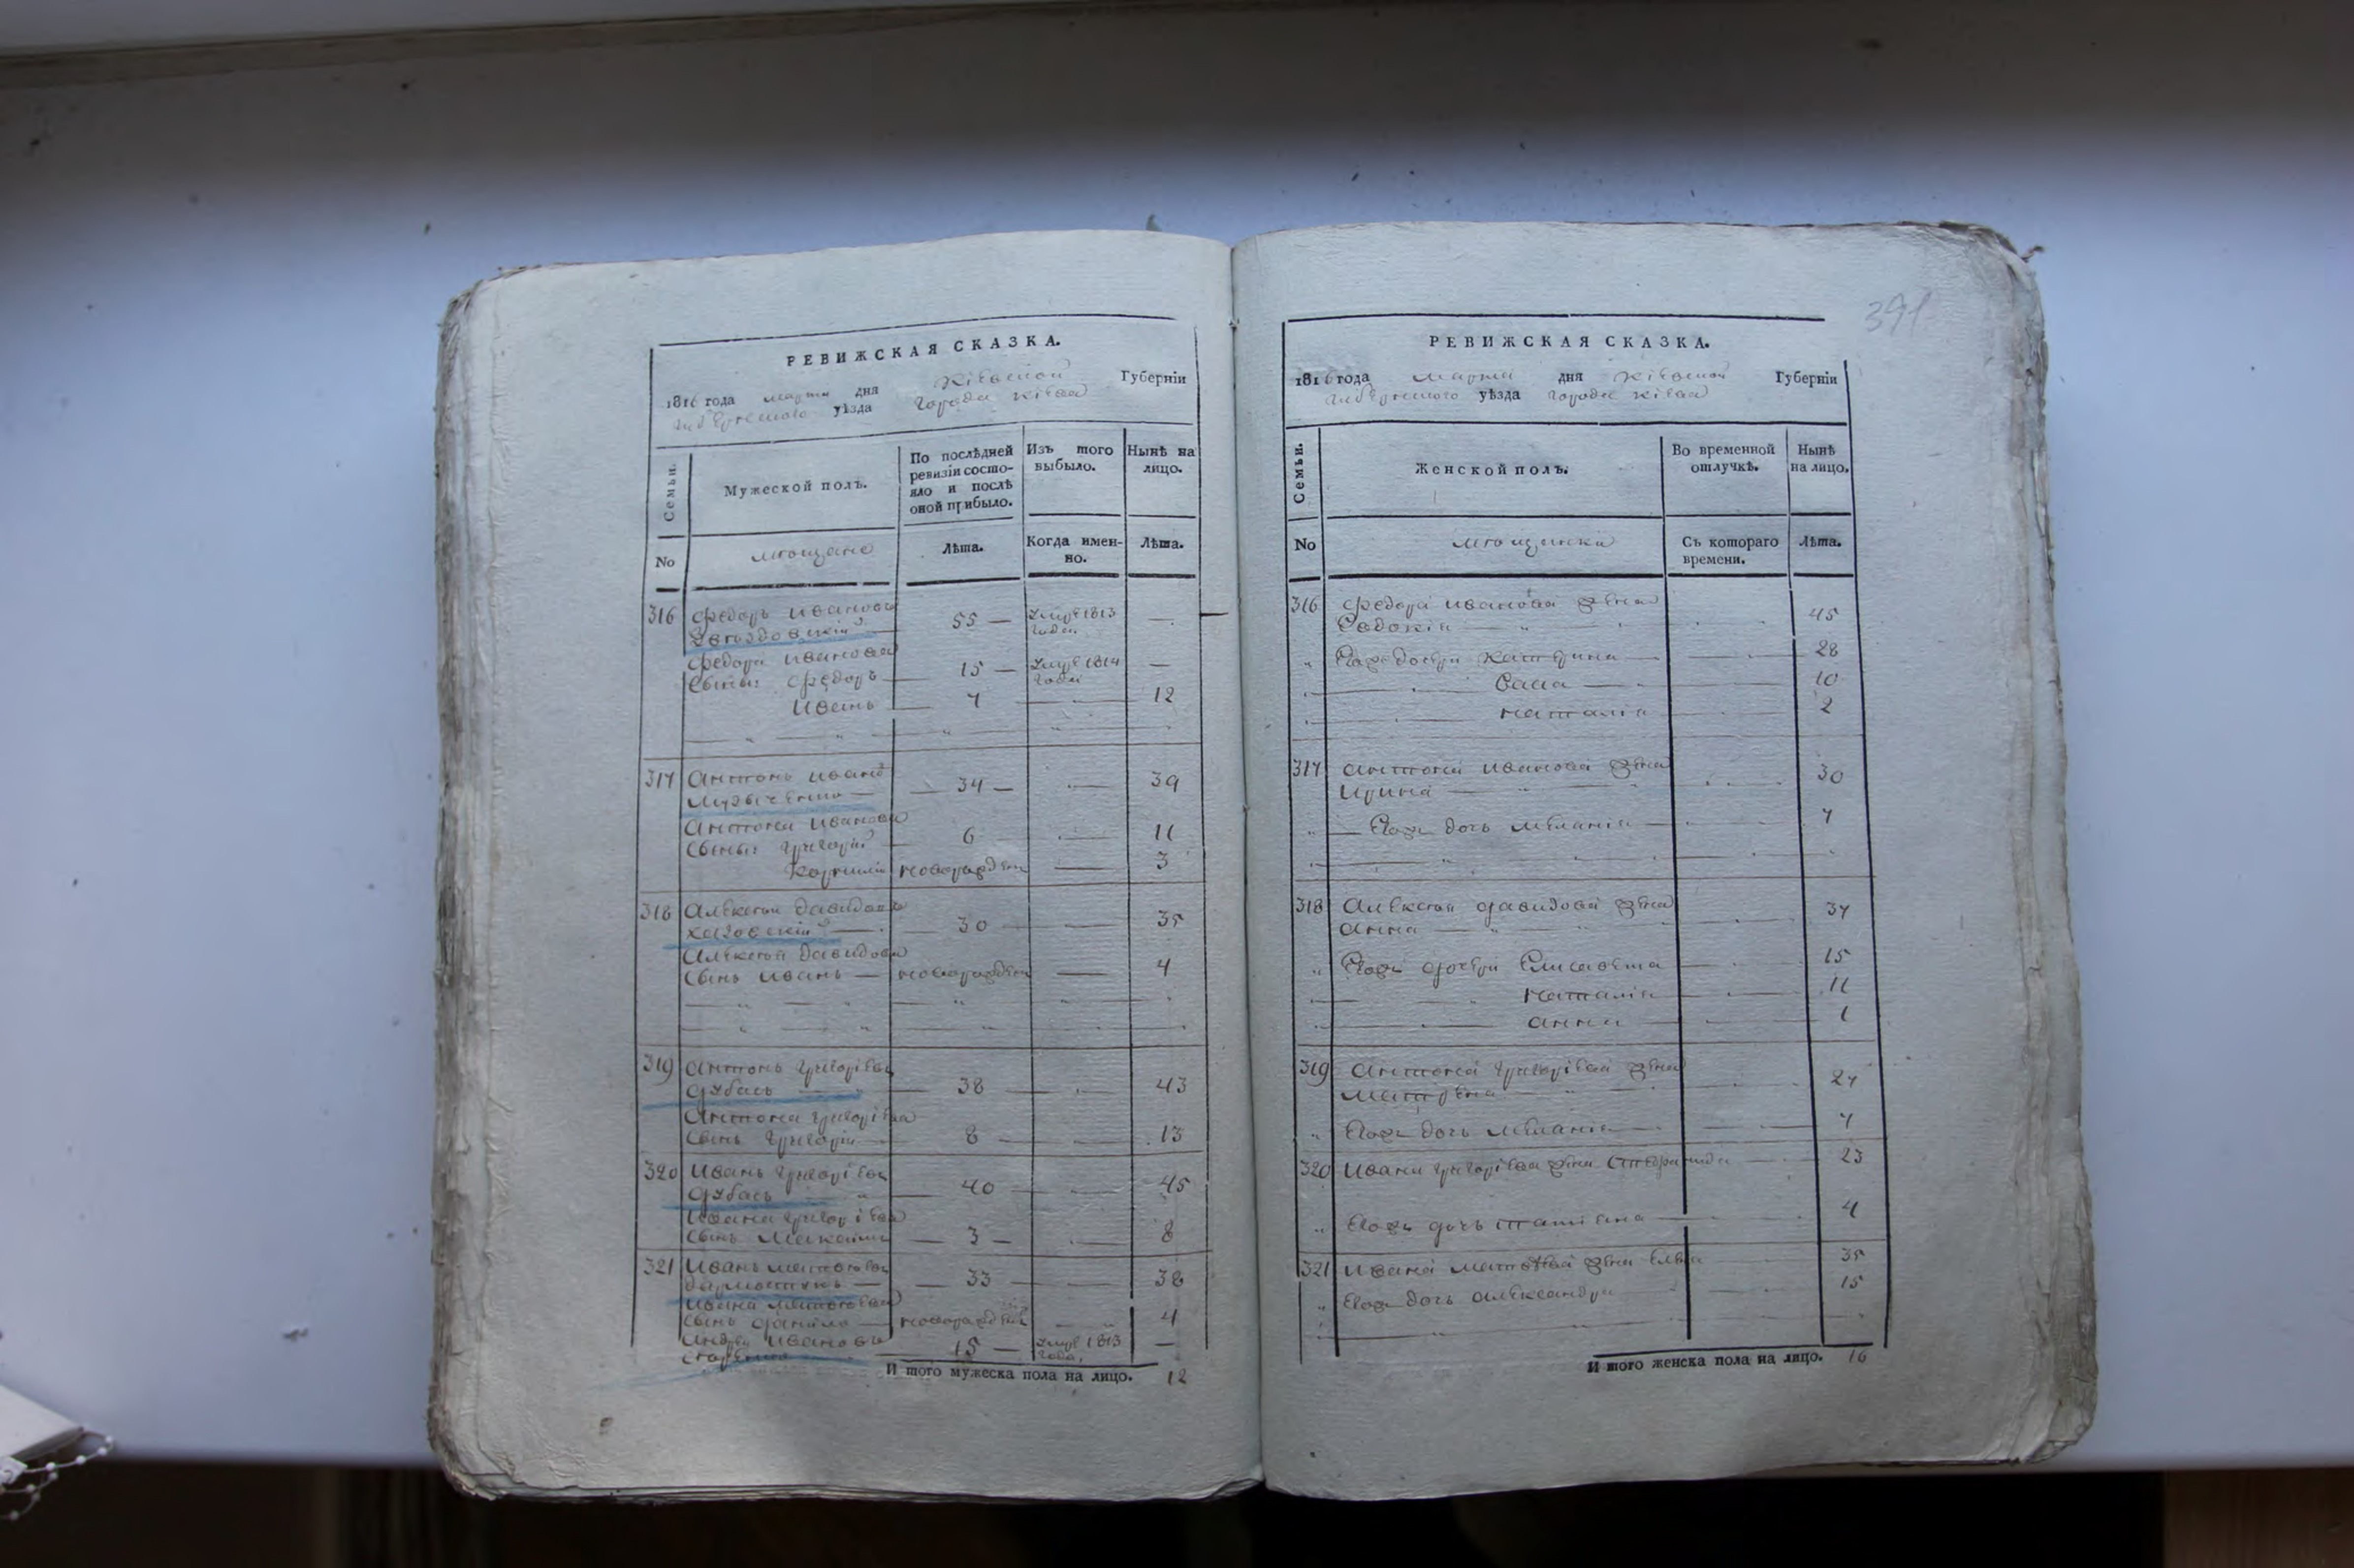 РЕВИЖСКАЯ СКАЗКА.
1816 года марта дня Кіевской Губерніи
губернского уѣзда города Кіева
Семьи.
Мужеской полъ.
По послѣдней ревизіи состо-
яло и послѣ
оной прибыло.
Изъ того
выбыло.
Нынѣ на
лицо.
No
мѣщане
Лѣта.
Когда имен-
но.
Лѣта.
316 Федоръ Ивановъ
Гвоздовскій 55 — 1813
года. —
Федора Иванова
сыны: Федоръ 15 — 1814
года —
Иванъ 7 12
317 Антонъ Ивановъ
Музыченко 34 — 39
Антона Иванова
сыны: Григорій 6 11
Корнилій новорожденъ 3
318 Алексей Давидовъ
30 35
Алексея Давидова
сынъ Иванъ — новорожденъ 4
319 Антонъ Григоріевъ
Дубась 38 43
Антона Григоріева
сынъ Григорій 8 13
320 Иванъ Григоріевъ
Дубась 40 45
Ивана Григоріева
сынъ Максимъ 3 — 8
321 Иванъ Матвѣевъ
33 38
Ивана Матвѣева
сынъ Данило новорожденъ 4
Андрей Ивановъ
15 — 1813
года. —
И того мужеска пола на лицо. 12
391
РЕВИЖСКАЯ СКАЗКА.
1816 года марта дня Кіевской Губерніи
губернского уѣзда города Кіева
Семьи.
Женской полъ.
Во временной
отлучкѣ.
Нынѣ
на лицо.
No
мѣщанки
Съ котораго
времени.
Лѣта.
316 Федора Иванова жена
Евдокія 45
Его же дочери Катерина 28
10
Наталія 2
317 Антона Иванова жена
Ирина 30
Его же дочь Меланія 7
318 Алексея Давидова жена
Анна 37
Его же дочери Елисавета 15
Наталія 11
Анна 1
319 Антона Григоріева жена
Матрена 27
Его же дочь Меланія 7
320 Ивана Григоріева жена Степанида 23
Его же дочь Татіана 4
321 Ивана Матвѣева жена Елена 35
Его же дочь Александра 15
И того женска пола на лицо. 16